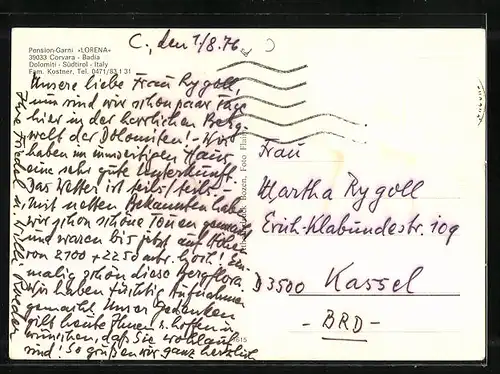 Pension-Garni «LORENA»
39033 Corvara - Badia
Dolomiti - Südtirol - Italy
Fam. Kostner, Tel. 0471/83 1 31
C., den 1/8.76
Unsere liebe Frau Rygoll,
nun sind wir schon paar Tage
hier in der herrlichen Berg-
welt der Dolomiten! Wir
haben im umseitigen Haus
eine sehr gute Unterkunft.
Das Wetter ist teils/teils -
mit netten Bekannten haben
wir schon schöne Touren gemacht
und waren bis jetzt auf Höhen
von 2100 + 2250 mtr. hoch! Ein-
malig schön diese Bergflora.
Wir haben tüchtig Aufnahmen
gemacht. Unser Gedenken
gilt heute Ihnen u. hoffen u.
wünschen, daß Sie wohlauf
sind! So grüßen wir ganz herzlich
Ihre Friedel u. Willi
Bozen, Foto
Frau
Martha Rygoll
Erich-Klabundestr. 109
D 3500 Kassel
- BRD -